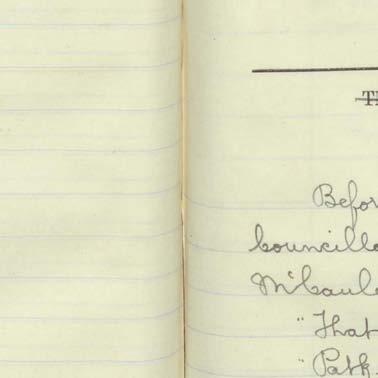 Befor
Councillo
McCaule
"That
"Path